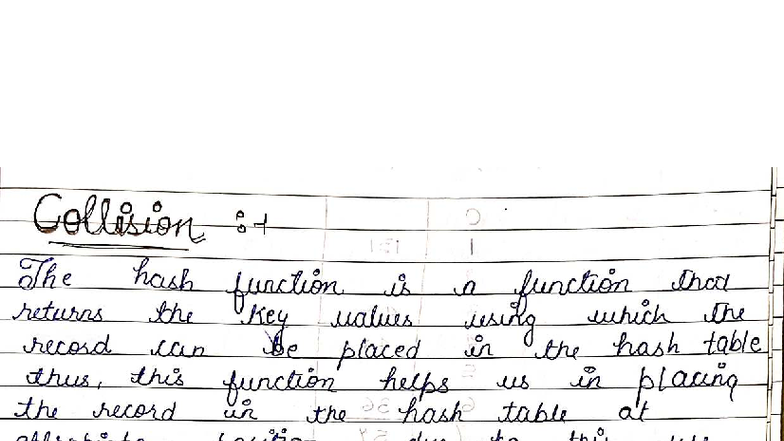 Collision :-
The hash function is a function that
returns the key values using which the
record can be placed in the hash table
thus, this function helps us in placing
the record in the hash table at